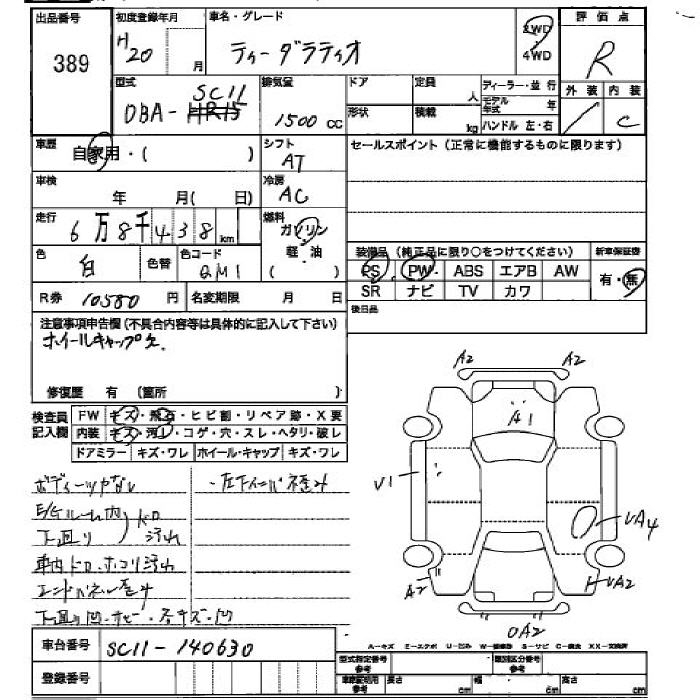 出品番号 初度登録年月 車名・グレード 評価点
389 H20 月 ティーダラティオ 2WD 4WD R
型式 排気量 ドア 定員 人 ディーラー・並行 外装 内装
DBA- HR15 SC11 1500 cc 形状 積載 kg モデル年式 年 ハンドル 左・右 / C
車歴 自家用・( ) シフト AT セールスポイント(正常に機能するものに限ります)
車検 年 月( 日) 冷房 AC
走行 6万8千438km 燃料 ガソリン
軽・油
( )
色 白 色替 色コード QM1
装備品(純正品に限り○をつけてください) 新車保証書
PS PW ABS エアB AW 有・無
SR ナビ TV カワ
R券 10580 円 名変期限 月 日
後日品
注意事項申告欄(不具合内容等は具体的に記入して下さい)
ホイールキャップ欠
修復歴 有 (箇所 )
検査員記入欄 FW キズ・飛石・ヒビ割・リペア跡・X要
内装 キズ・汚れ・コゲ・穴・スレ・ヘタリ・破レ
ドアミラー キズ・ワレ ホイール・キャップ キズ・ワレ
ボディーツヤなし
E/Gルーム内 下廻り ドロ汚れ
車内ドロ・ホコリ汚れ
エンドパネル歪み
下廻り凹・サビ・キズ・凹
A2 A2
A1
V1
UA4
A2
UA2
UA2
A-キズ E-エクボ U-凹み W-補修跡 S-サビ C-腐食 XX-交換済
車台番号 SC11-140630
登録番号
型式指定番号 参考 類別区分番号 参考
車庫証明用 参考 長さ cm 幅 cm 高さ cm